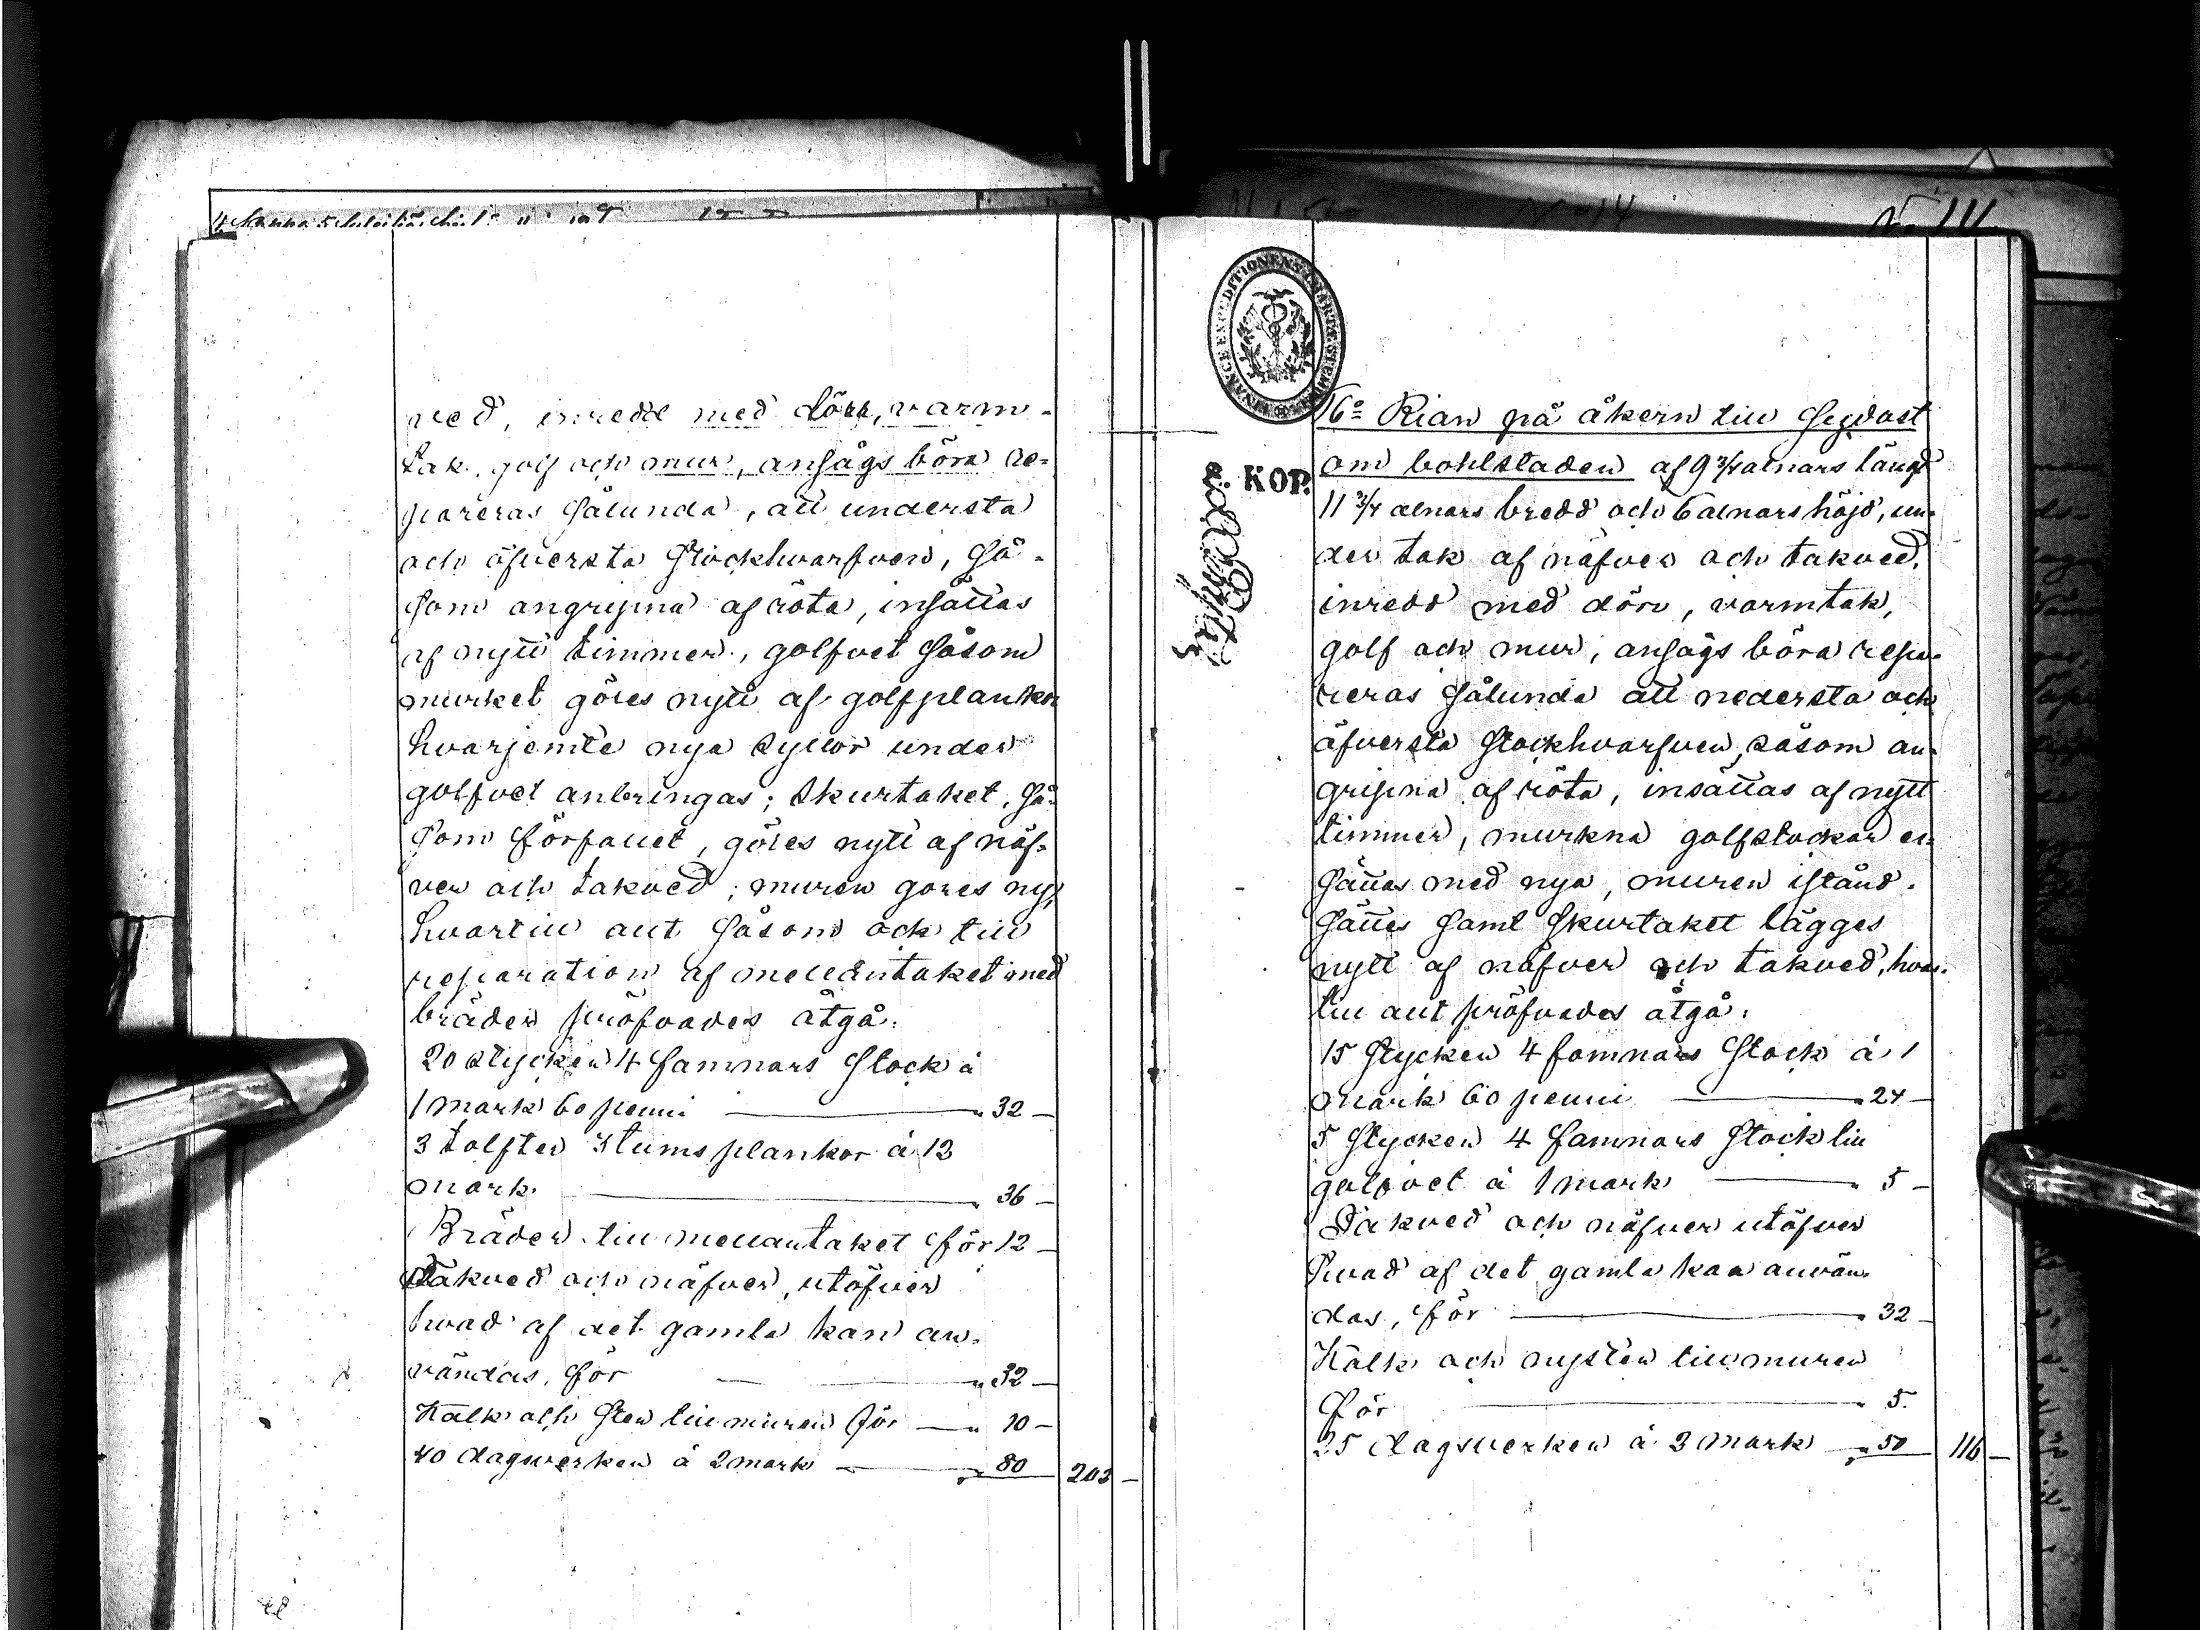 ved, inredt med dörr, varm-
tak, golf och mur, ansågs böra re-
pareras sålunda, att understa
och öfversta stockhvarfven, så-
som angripna af röta, insättas
af nytt timmer, golfvet såsom
murket göres nytt af golfplankor
hvarjemte nya syllor under
golfvet anbringas; skurtaket, så-
som förfallet, göres nytt af näf-
ver och takved; muren göres ny,
hvartill allt såsom ock till
reparation af mellantaket med
bräder pröfvades åtgå:
20 stycken 4 famnars stock à
1 mark 60 penni " 32 —
3 tolfter 3 tums plankor à 12
mark " 36 —
Bräder till mellantaket för 12 —
Takved och näfver, utöfver
hvad af det gamla kan an-
vändas, för " 32 —
Kalk och sten till muren för " 10 —
40 dagsverken à 2 mark " 80 202 —
FINANCE EXPEDITIONENS
KOP.
16o Rian på åkern till sydost
om bohlstaden af 9 3/4 alnars längd
11 3/4 alnars bredd och 6 alnars höjd, un-
der tak af näfver och takved,
inredd med dörr, varmtak,
golf och mur, ansågs böra repa-
reras sålunda att nedersta och
öfversta stockhvarfven, såsom an-
gripna af röta, insättas af nytt
timmer, murkna golfstockar er-
sättas med nya, muren istånd-
sättes samt skurtaket lägges
nytt af näfver och takved, hvar-
till allt pröfvades åtgå:
15 stycken 4 famnars stock à 1
mark 60 penni " 24 —
5 stycken 4 famnars stock till
golfvet à 1 mark " 5 —
Takved och näfver utöfver
hvad af det gamla kan använ-
das, för " 32 —
Kalk och mursten till muren
för " 5.
25 dagsverken à 2 mark " 50 116 —